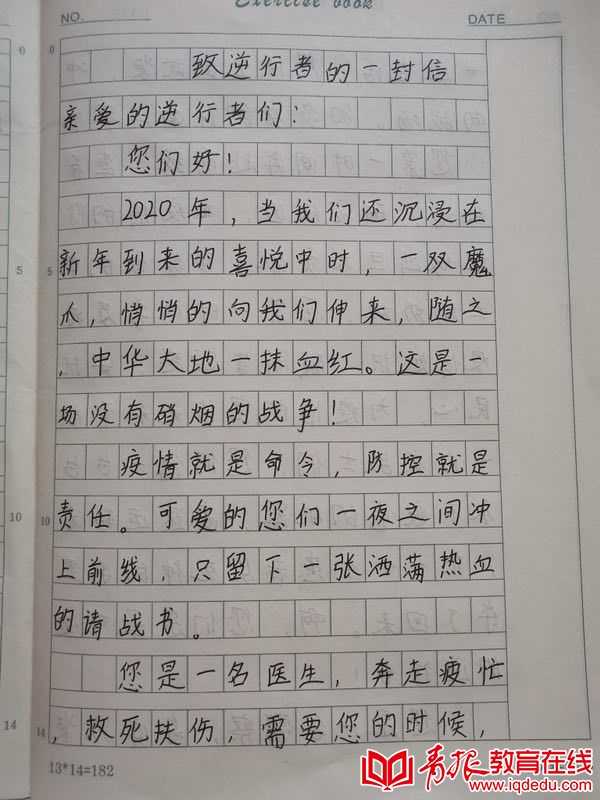 Exercise book
NO.
DATE
致逆行者的一封信
亲爱的逆行者们：
您们好！
2020年，当我们还沉浸在
新年到来的喜悦中时，一双魔
爪，悄悄的向我们伸来，随之
，中华大地一抹血红。这是一
场没有硝烟的战争！
疫情就是命令，防控就是
责任。可爱的您们一夜之间冲
上前线，只留下一张洒满热血
的请战书。
您是一名医生，奔走疲忙
，救死扶伤，需要您的时候，
0
0
5
5
10
10
14
14
13*14=182
青报教育在线
www.iqdedu.com